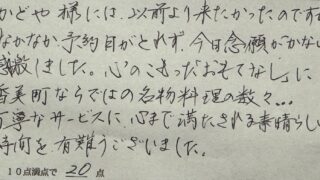 かどや様には、以前より来たかったのですが
なかなか予約日がとれず、今日念願がかない
感激しました。心のこもったおもてなしに
香美町ならではの名物料理の数々…
丁寧なサービスに心まで満たされる素晴らしい
時間を有難うございました。
10点満点で 20 点